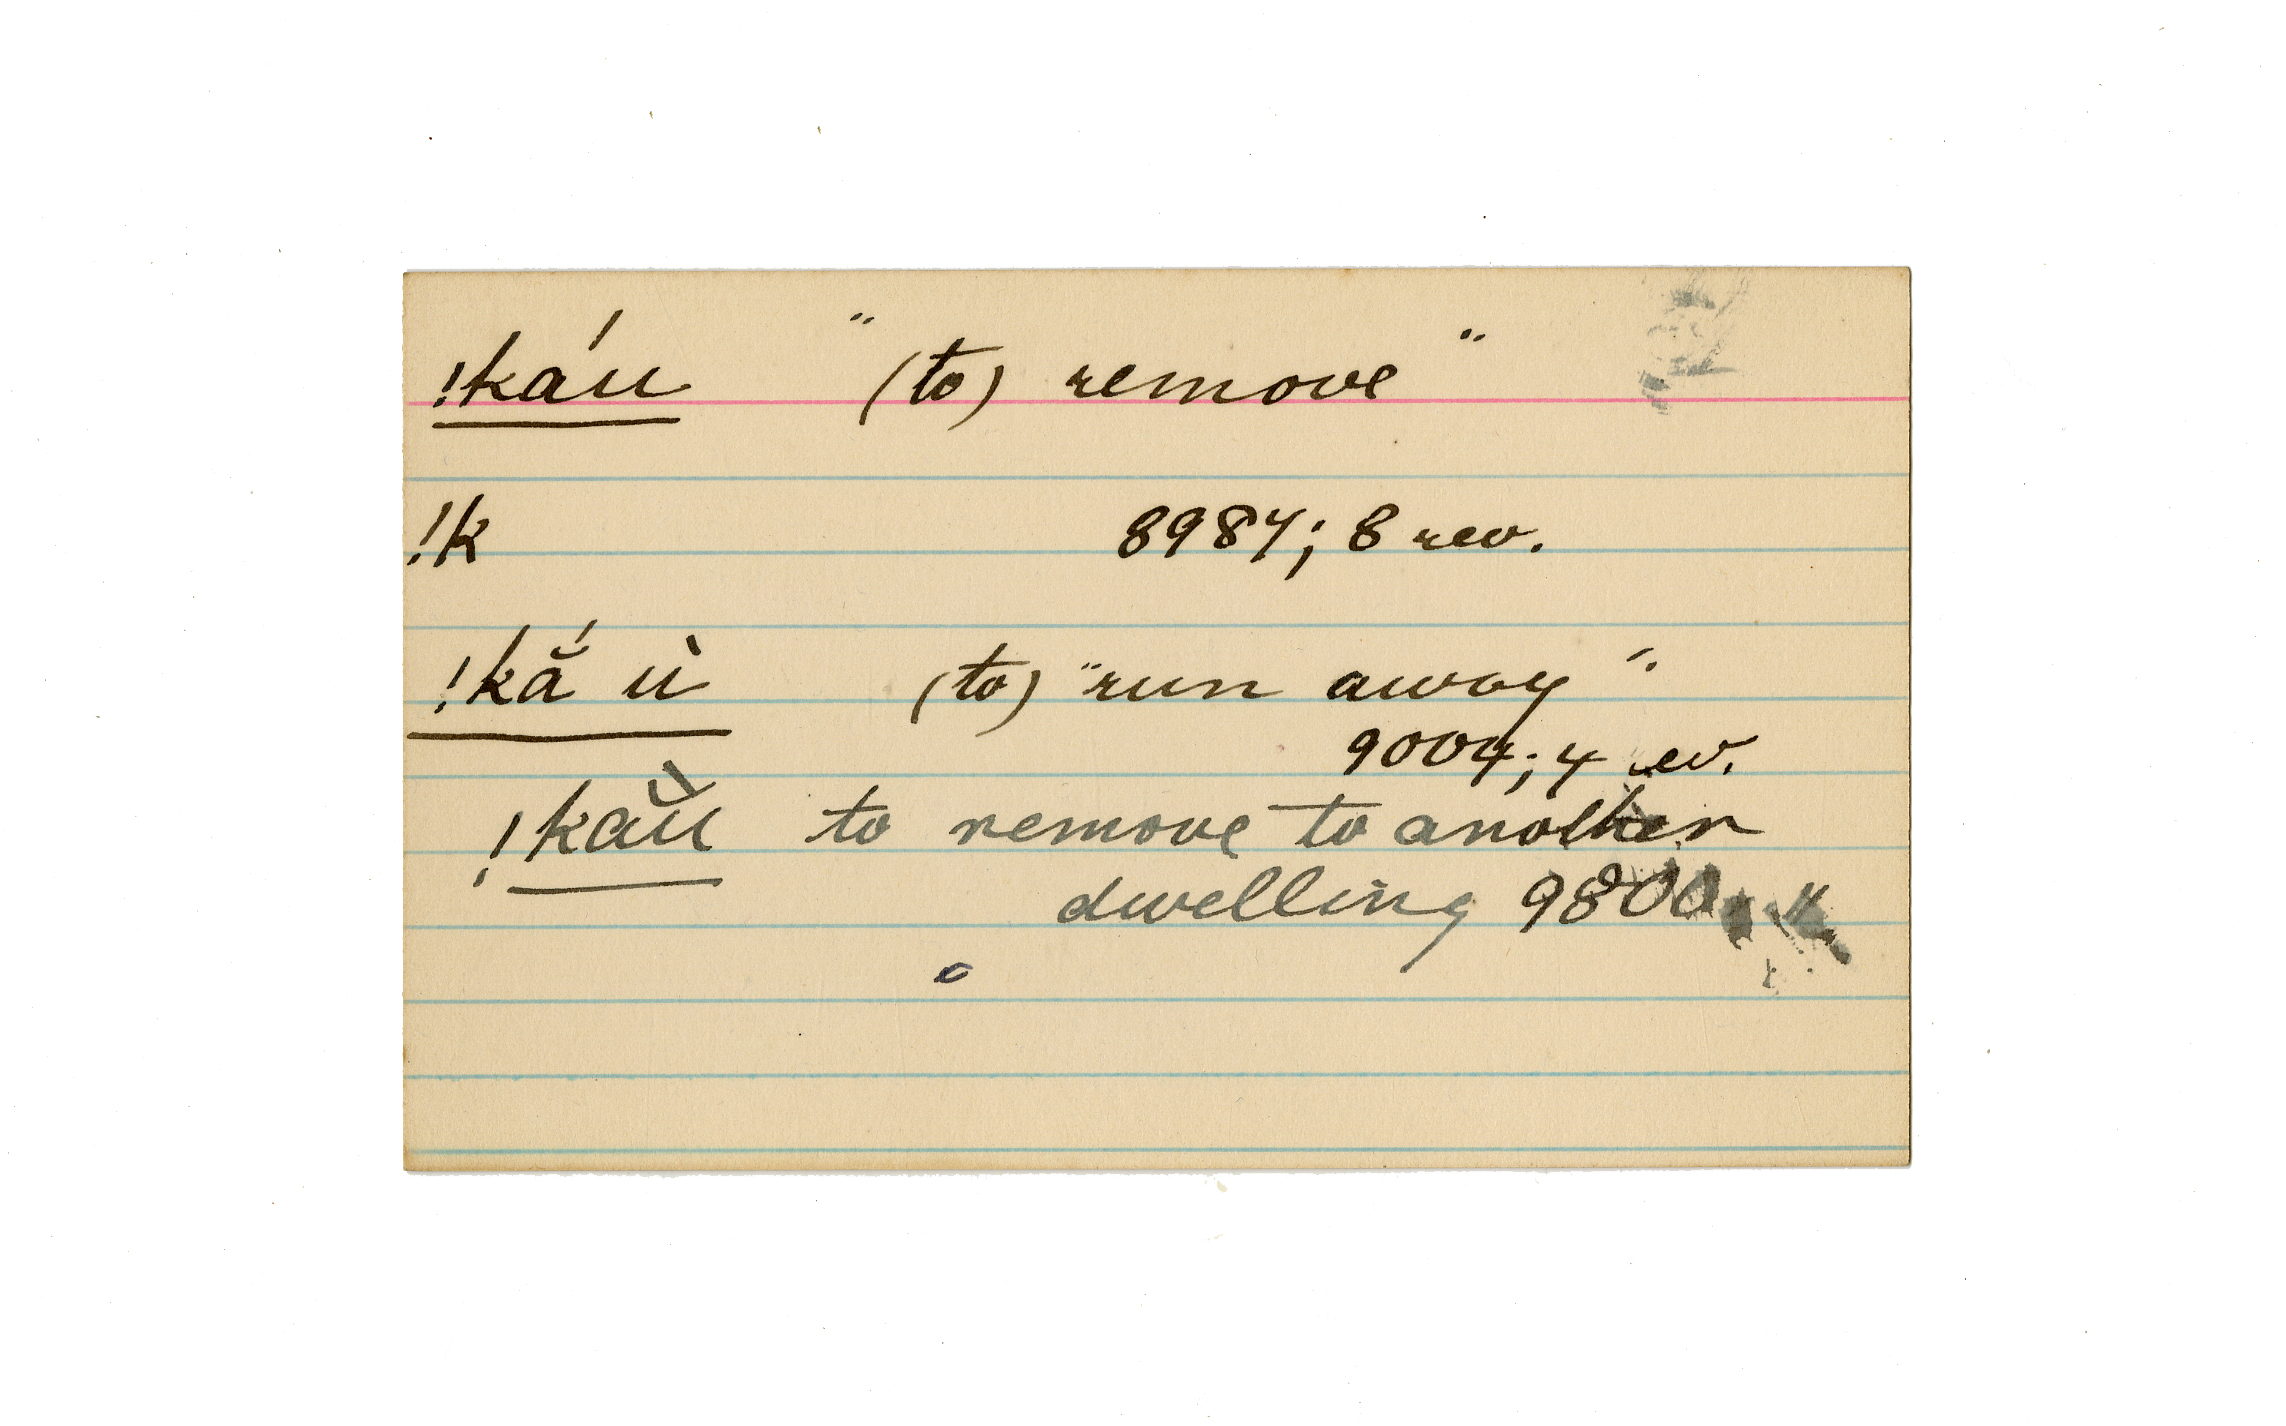 !káu "(to) remove"
!k 8987; 8 rev.
!kắ ù (to) "run away".
9004; 4 rev.
!kăù to remove to another
dwelling 9800